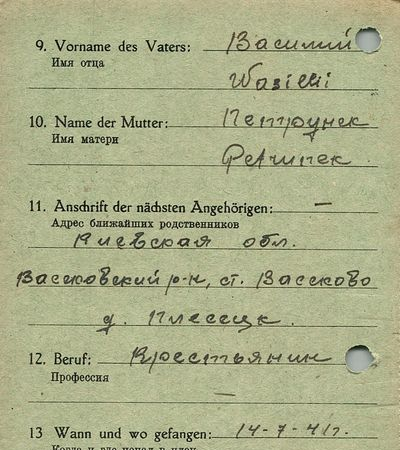 9. Vorname des Vaters: Василий
Имя отца
Wasilli
10. Name der Mutter: Петрунек
Имя матери
11. Anschrift der nächsten Angehörigen: —
Адрес ближайших родственников
Киевская обл.
Васековский р-н, ст. Васеково
д. Плессецк.
12. Beruf: Крестьянин
Профессия
—
13 Wann und wo gefangen: 14-7-41г.
Когда и где попал в плен